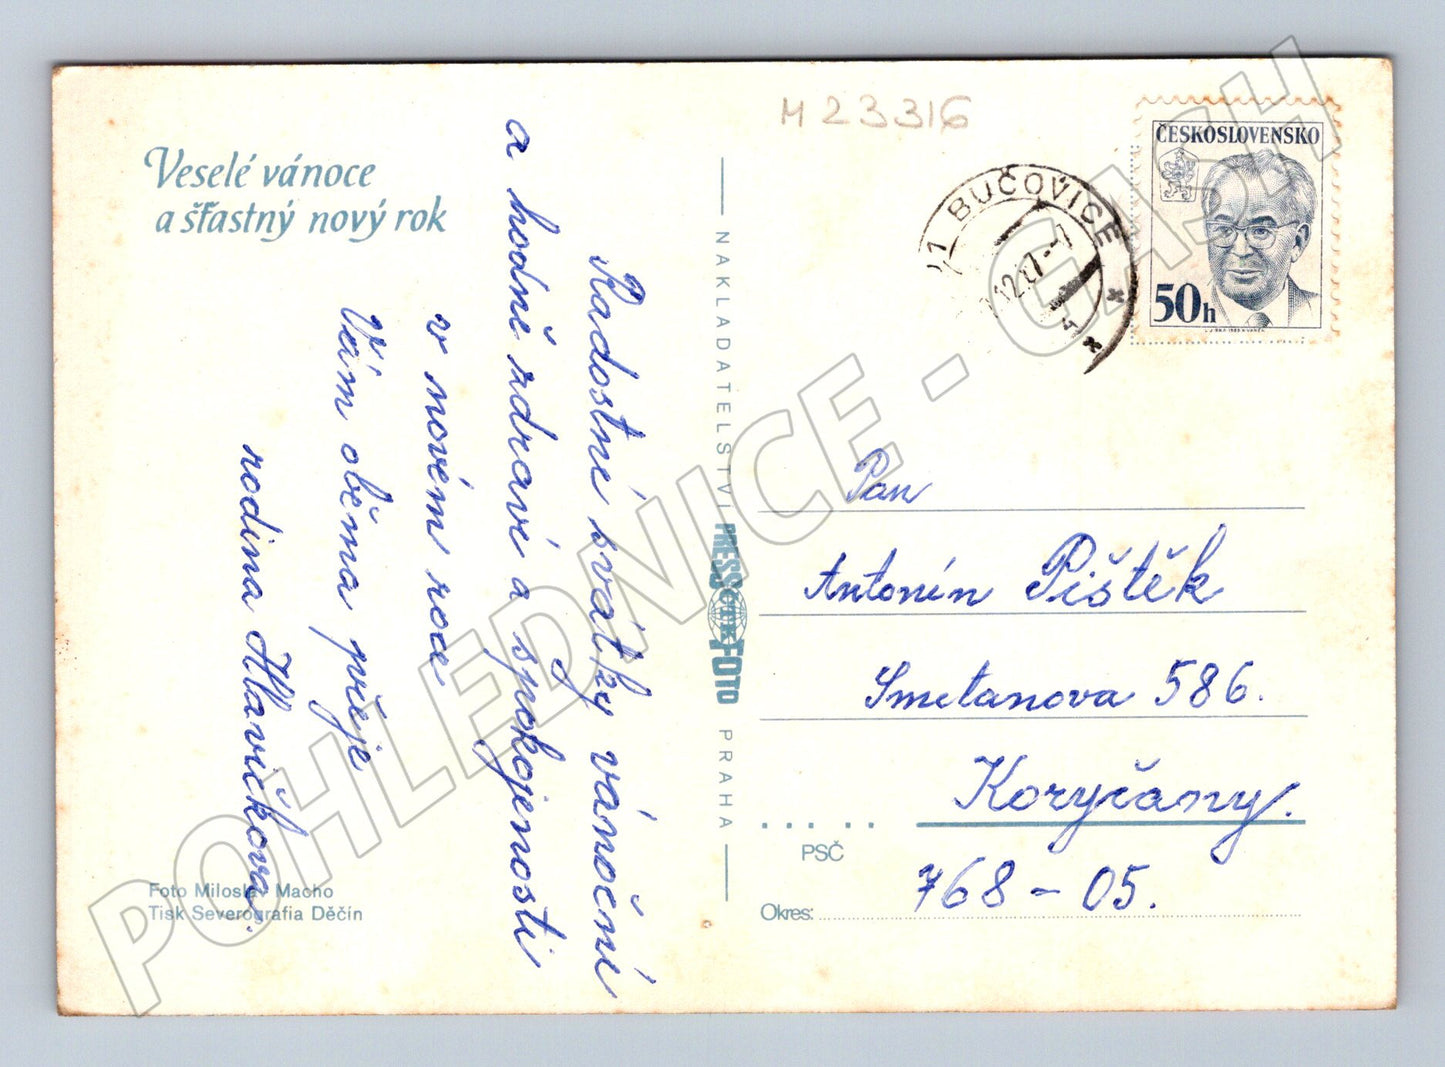 M 23316
Veselé vánoce
a šťastný nový rok
Radostné svátky vánoční
a hodně zdraví a spokojenosti
v novém roce
Vám oběma přeje
rodina Hlavičkova.
Foto Miloslav Macho
Tisk Severografia Děčín
NAKLADATELSTVÍ PRESSFOTO PRAHA
BUČOVICE
ČESKOSLOVENSKO
50h
Pan
Antonín Pištěk
Smetanova 586.
Koryčany.
PSČ
768-05.
Okres:
POHLEDNICE - GASH